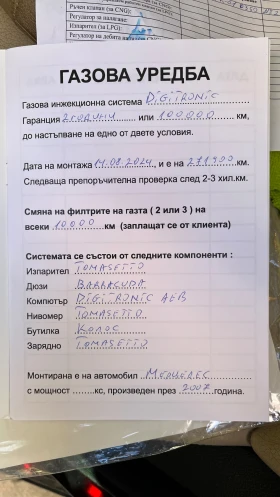 Ръчен клапан (за CNG):
Регулатор за налягане:
Изпарител (за LPG):
Регулатор на дебита на
ГАЗОВА УРЕДБА
Газова инжекционна система DIGITRONIC
Гаранция 2 години или 100.000 км,
до настъпване на едно от двете условия.
Дата на монтажа 14.08.2024, и е на 211900 км.
Следваща препоръчителна проверка след 2-3 хил.км.
Смяна на филтрите на газта ( 2 или 3 ) на
всеки 10.000 км (заплащат се от клиента)
Системата се състои от следните компоненти :
Изпарител TOMASETTO
Дюзи BARRACUDA
Компютър DIGITRONIC AEB
Нивомер TOMASETTO
Бутилка КОЛОС
Зарядно TOMASETTO
Монтирана е на автомобил МЕРЦЕДЕС
с мощност кс, произведен през 2007 година.